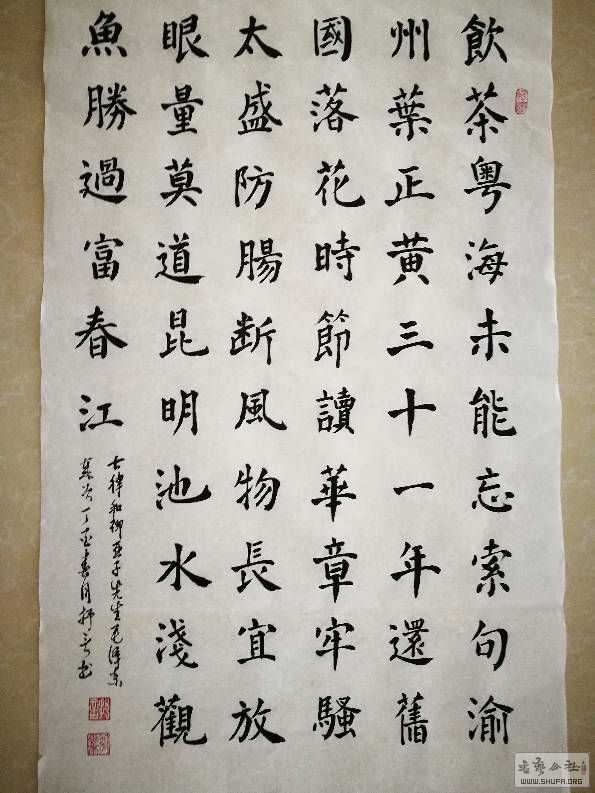 飲茶粤海未能忘索句渝
州葉正黄三十一年還舊
國落花時節讀華章牢騷
太盛防腸断風物長宜放
眼量莫道昆明池水淺觀
魚勝過富春江
七律和柳亞子先生毛澤東
歲次丁酉春月
書法公社
WWW.SHUFA.ORG